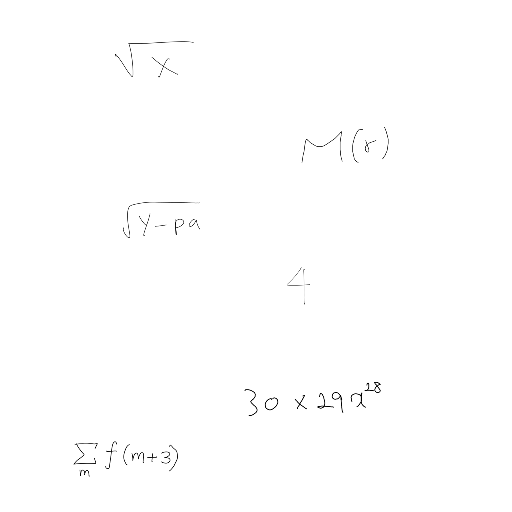 √x
M(r)
√y-pa
4
30 × 29x^28
∑_m f(m+3)